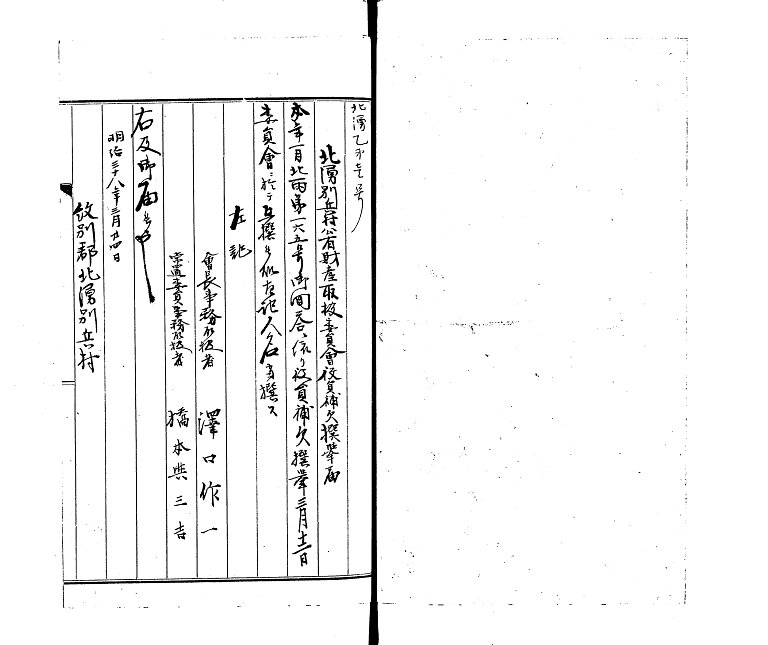 北湧乙第壱号
北湧別兵村公有財産取扱委員會役員補欠撰挙届
本年一月北両第一六五号御照会ニ依リ役員補欠撰挙三月十二日
委員會ニ於テ互撰候処左記人名当撰ス
左記
會長事務取扱者 澤口作一
常置委員事務取扱者 橋本與三吉
右及御届候也
明治三十八年三月廿四日
紋別郡北湧別兵村